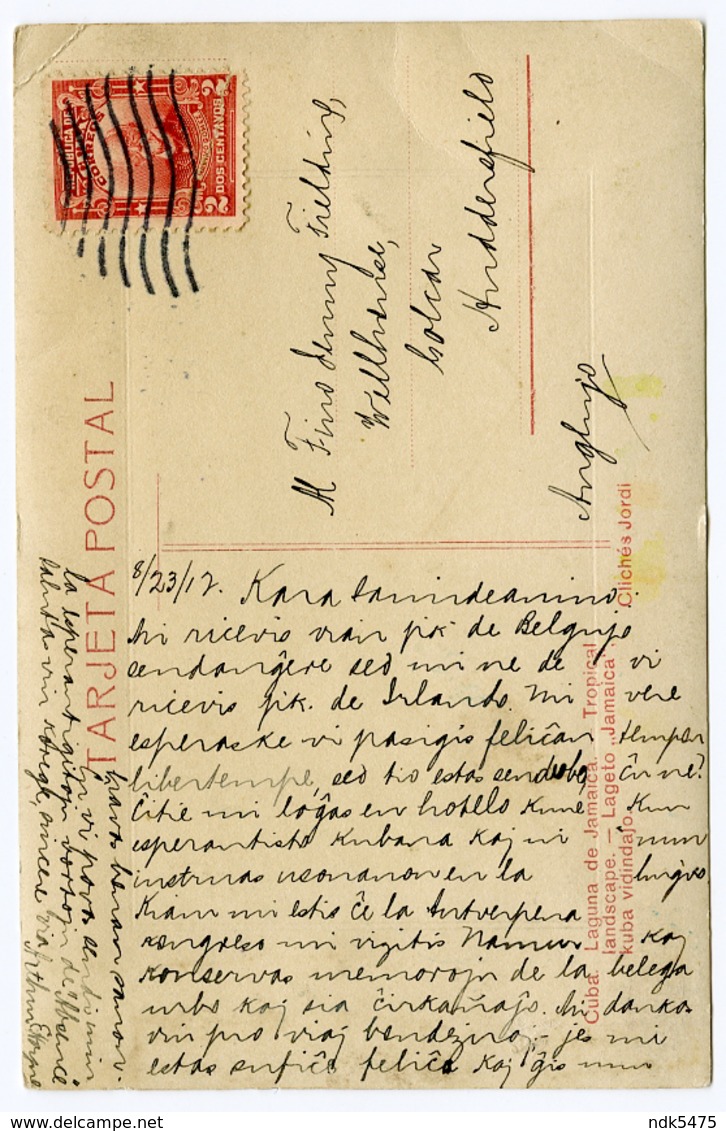 REPUBLICA DE
CORREOS
2 DOS CENTAVOS 2
TARJETA POSTAL
M Fino Jenny Fielding,
Wellhouse,
Golcar
Huddersfield
Anglujo
Cuba. Laguna de Jamaica. Tropical
landscape. — Lageto „Jamaica"
kuba vidindajo.
Clichés Jordi
8/23/12. Kara samideanino.
Mi ricevis vian pk. de Belgujo
sendanĝere sed mi ne de
ricevis pk. de Irlando. Mi vi vere
esperas ke vi pasigis feliĉan tempon
libertempe, sed tio estas senduba, ĉu ne?
Ĉi tie mi loĝas en hotelo kune kun
esperantisto Kubana kaj ni nun
instruas usonanon en la lingvo
Kiam mi estis ĉe la Antverpena
kongreso mi vizitis Namur kaj
konservas memorojn de la belega
urbo kaj sia ĉirkaŭaĵo. Mi dankas
vin pro viaj bondeziroj, jes mi
estas sufiĉe feliĉa kaj ĝis nun
havas bonan sanon.
vi povas sendi min
la esperantigitajn vortojn de
salutas vin kore, sincere via Arthur